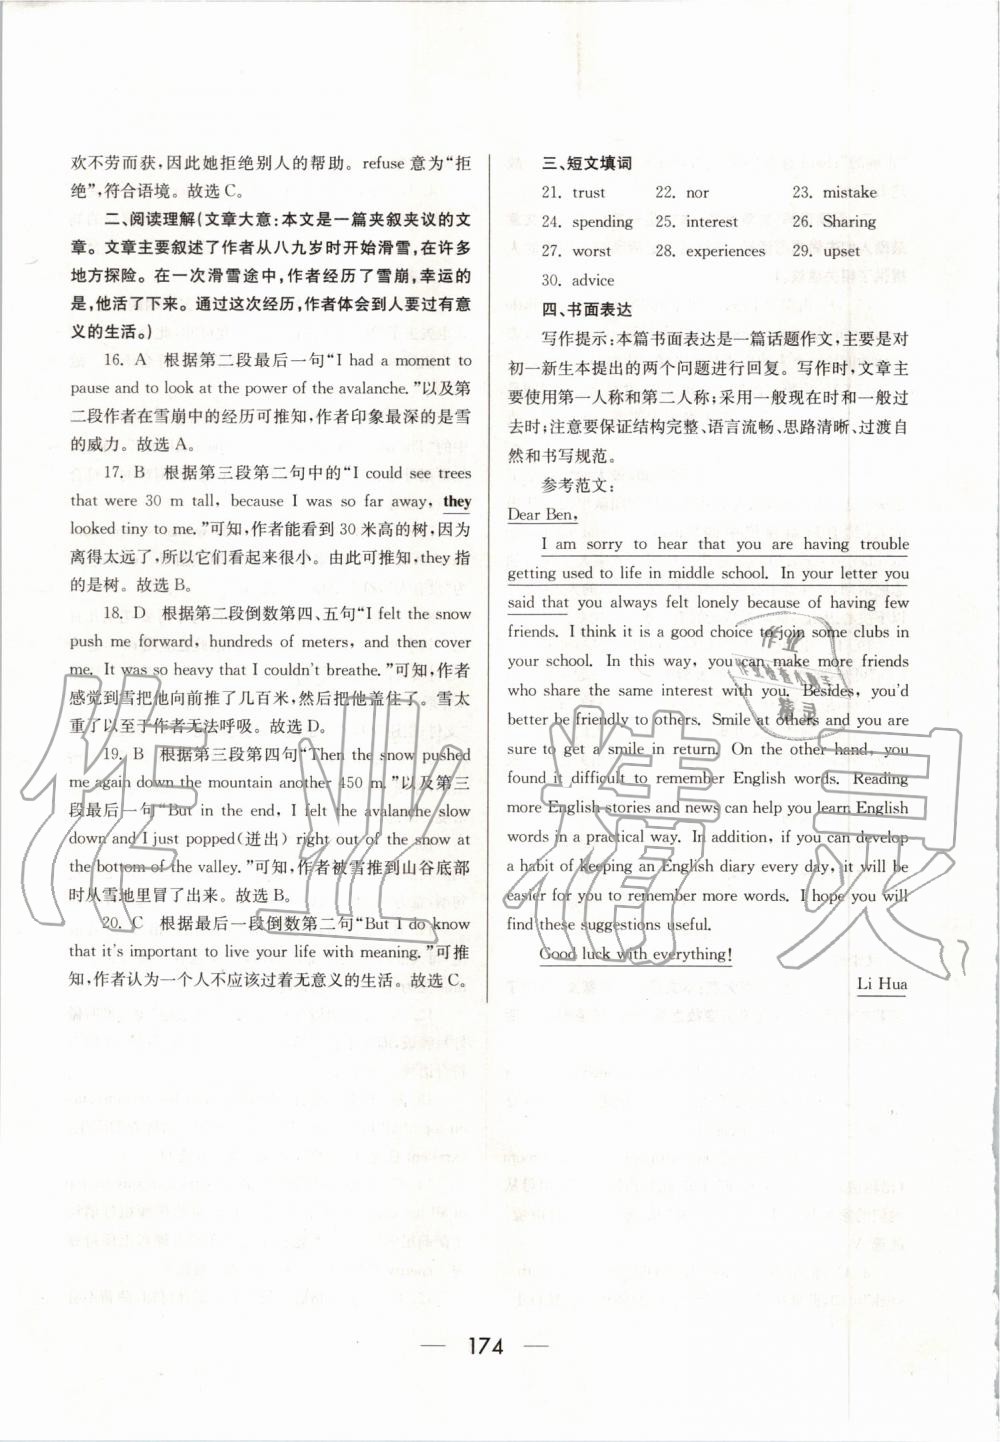 欢不劳而获,因此她拒绝别人的帮助。refuse意为“拒
绝”,符合语境。故选C。
二、阅读理解(文章大意:本文是一篇夹叙夹议的文
章。文章主要叙述了作者从八九岁时开始滑雪,在许多
地方探险。在一次滑雪途中,作者经历了雪崩,幸运的
是,他活了下来。通过这次经历,作者体会到人要过有意
义的生活。)
16. A 根据第二段最后一句“I had a moment to
pause and to look at the power of the avalanche.”以及第
二段作者在雪崩中的经历可推知,作者印象最深的是雪
的威力。故选A。
17. B 根据第三段第二句中的“I could see trees
that were 30 m tall, because I was so far away, they
looked tiny to me.”可知,作者能看到30米高的树,因为
离得太远了,所以它们看起来很小。由此可推知,they指
的是树。故选B。
18. D 根据第二段倒数第四、五句“I felt the snow
push me forward, hundreds of meters, and then cover
me. It was so heavy that I couldn't breathe.”可知,作者
感觉到雪把他向前推了几百米,然后把他盖住了。雪太
重了以至于作者无法呼吸。故选D。
19. B 根据第三段第四句“Then the snow pushed
me again down the mountain another 450 m.”以及第三
段最后一句“But in the end, I felt the avalanche slow
down and I just popped(迸出) right out of the snow at
the bottom of the valley.”可知,作者被雪推到山谷底部
时从雪地里冒了出来。故选B。
20. C 根据最后一段倒数第二句“But I do know
that it's important to live your life with meaning.”可推
知,作者认为一个人不应该过着无意义的生活。故选C。
三、短文填词
21. trust 22. nor 23. mistake
24. spending 25. interest 26. Sharing
27. worst 28. experiences 29. upset
30. advice
四、书面表达
写作提示:本篇书面表达是一篇话题作文,主要是对
初一新生本提出的两个问题进行回复。写作时,文章主
要使用第一人称和第二人称;采用一般现在时和一般过
去时;注意要保证结构完整、语言流畅、思路清晰、过渡自
然和书写规范。
参考范文:
Dear Ben,
I am sorry to hear that you are having trouble
getting used to life in middle school. In your letter you
said that you always felt lonely because of having few
friends. I think it is a good choice to join some clubs in
your school. In this way, you can make more friends
who share the same interest with you. Besides, you'd
better be friendly to others. Smile at others and you are
sure to get a smile in return. On the other hand, you
found it difficult to remember English words. Reading
more English stories and news can help you learn English
words in a practical way. In addition, if you can develop
a habit of keeping an English diary every day, it will be
easier for you to remember more words. I hope you will
find these suggestions useful.
Good luck with everything!
Li Hua
作业精灵
174